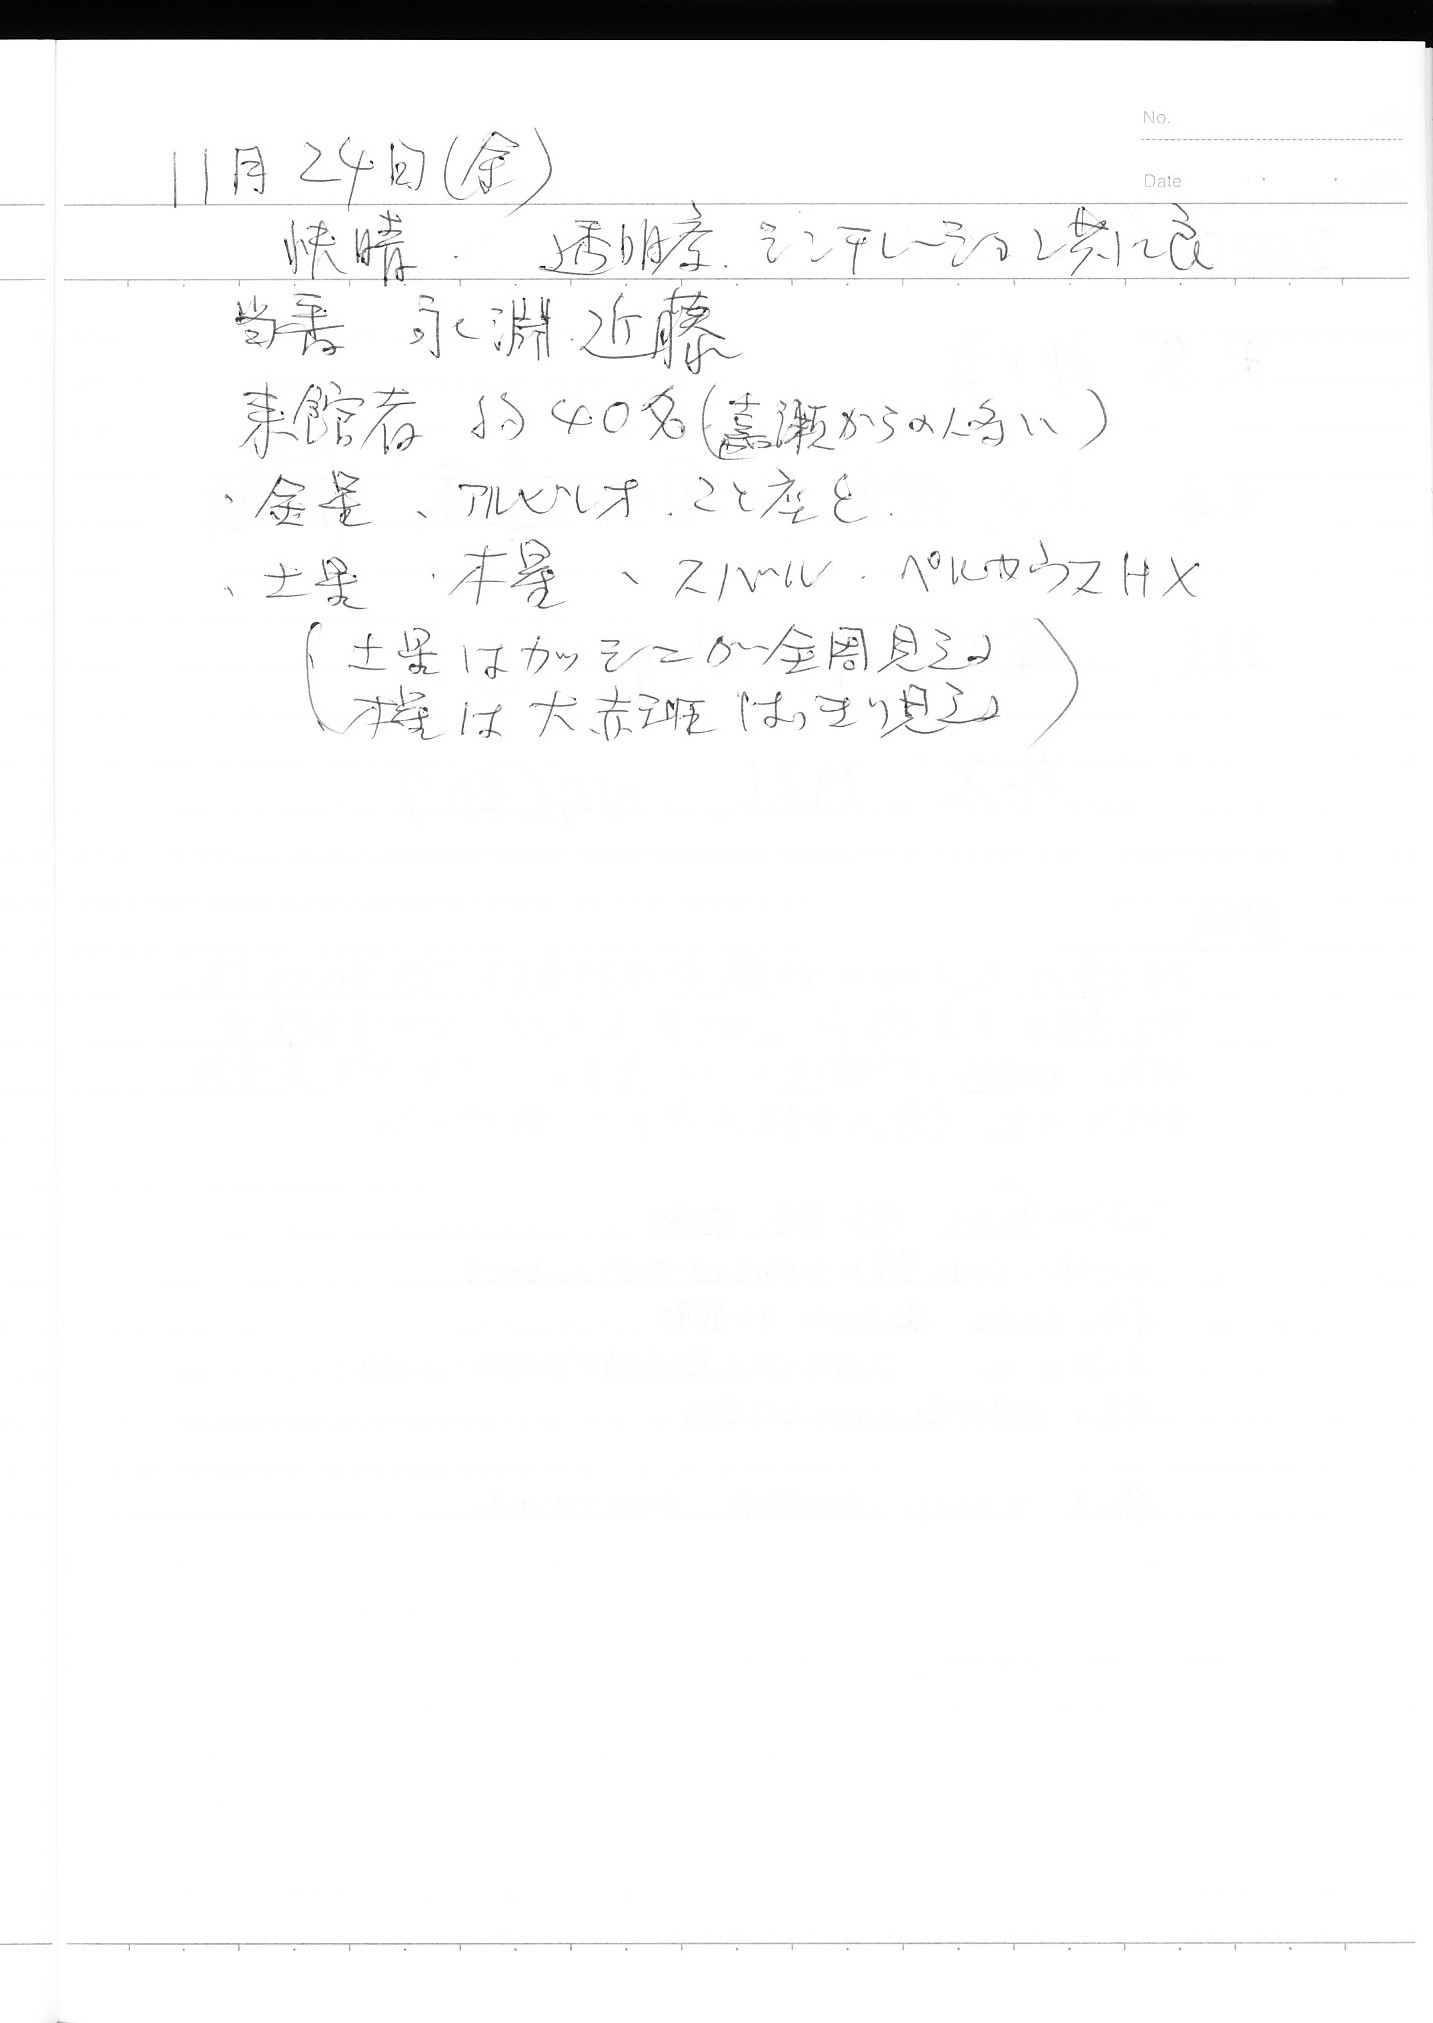 No.
Date
11月24日(金)
快晴. 透明度. シンチレーション共に良
当番 永淵.近藤
来館者 約40名(嘉瀬からの人多い)
・金星、アルビレオ.こと座ε.
、土星・木星、スバル.ペルセウスHX
(土星はカッシニが全周見える
木星は大赤斑はっきり見える)